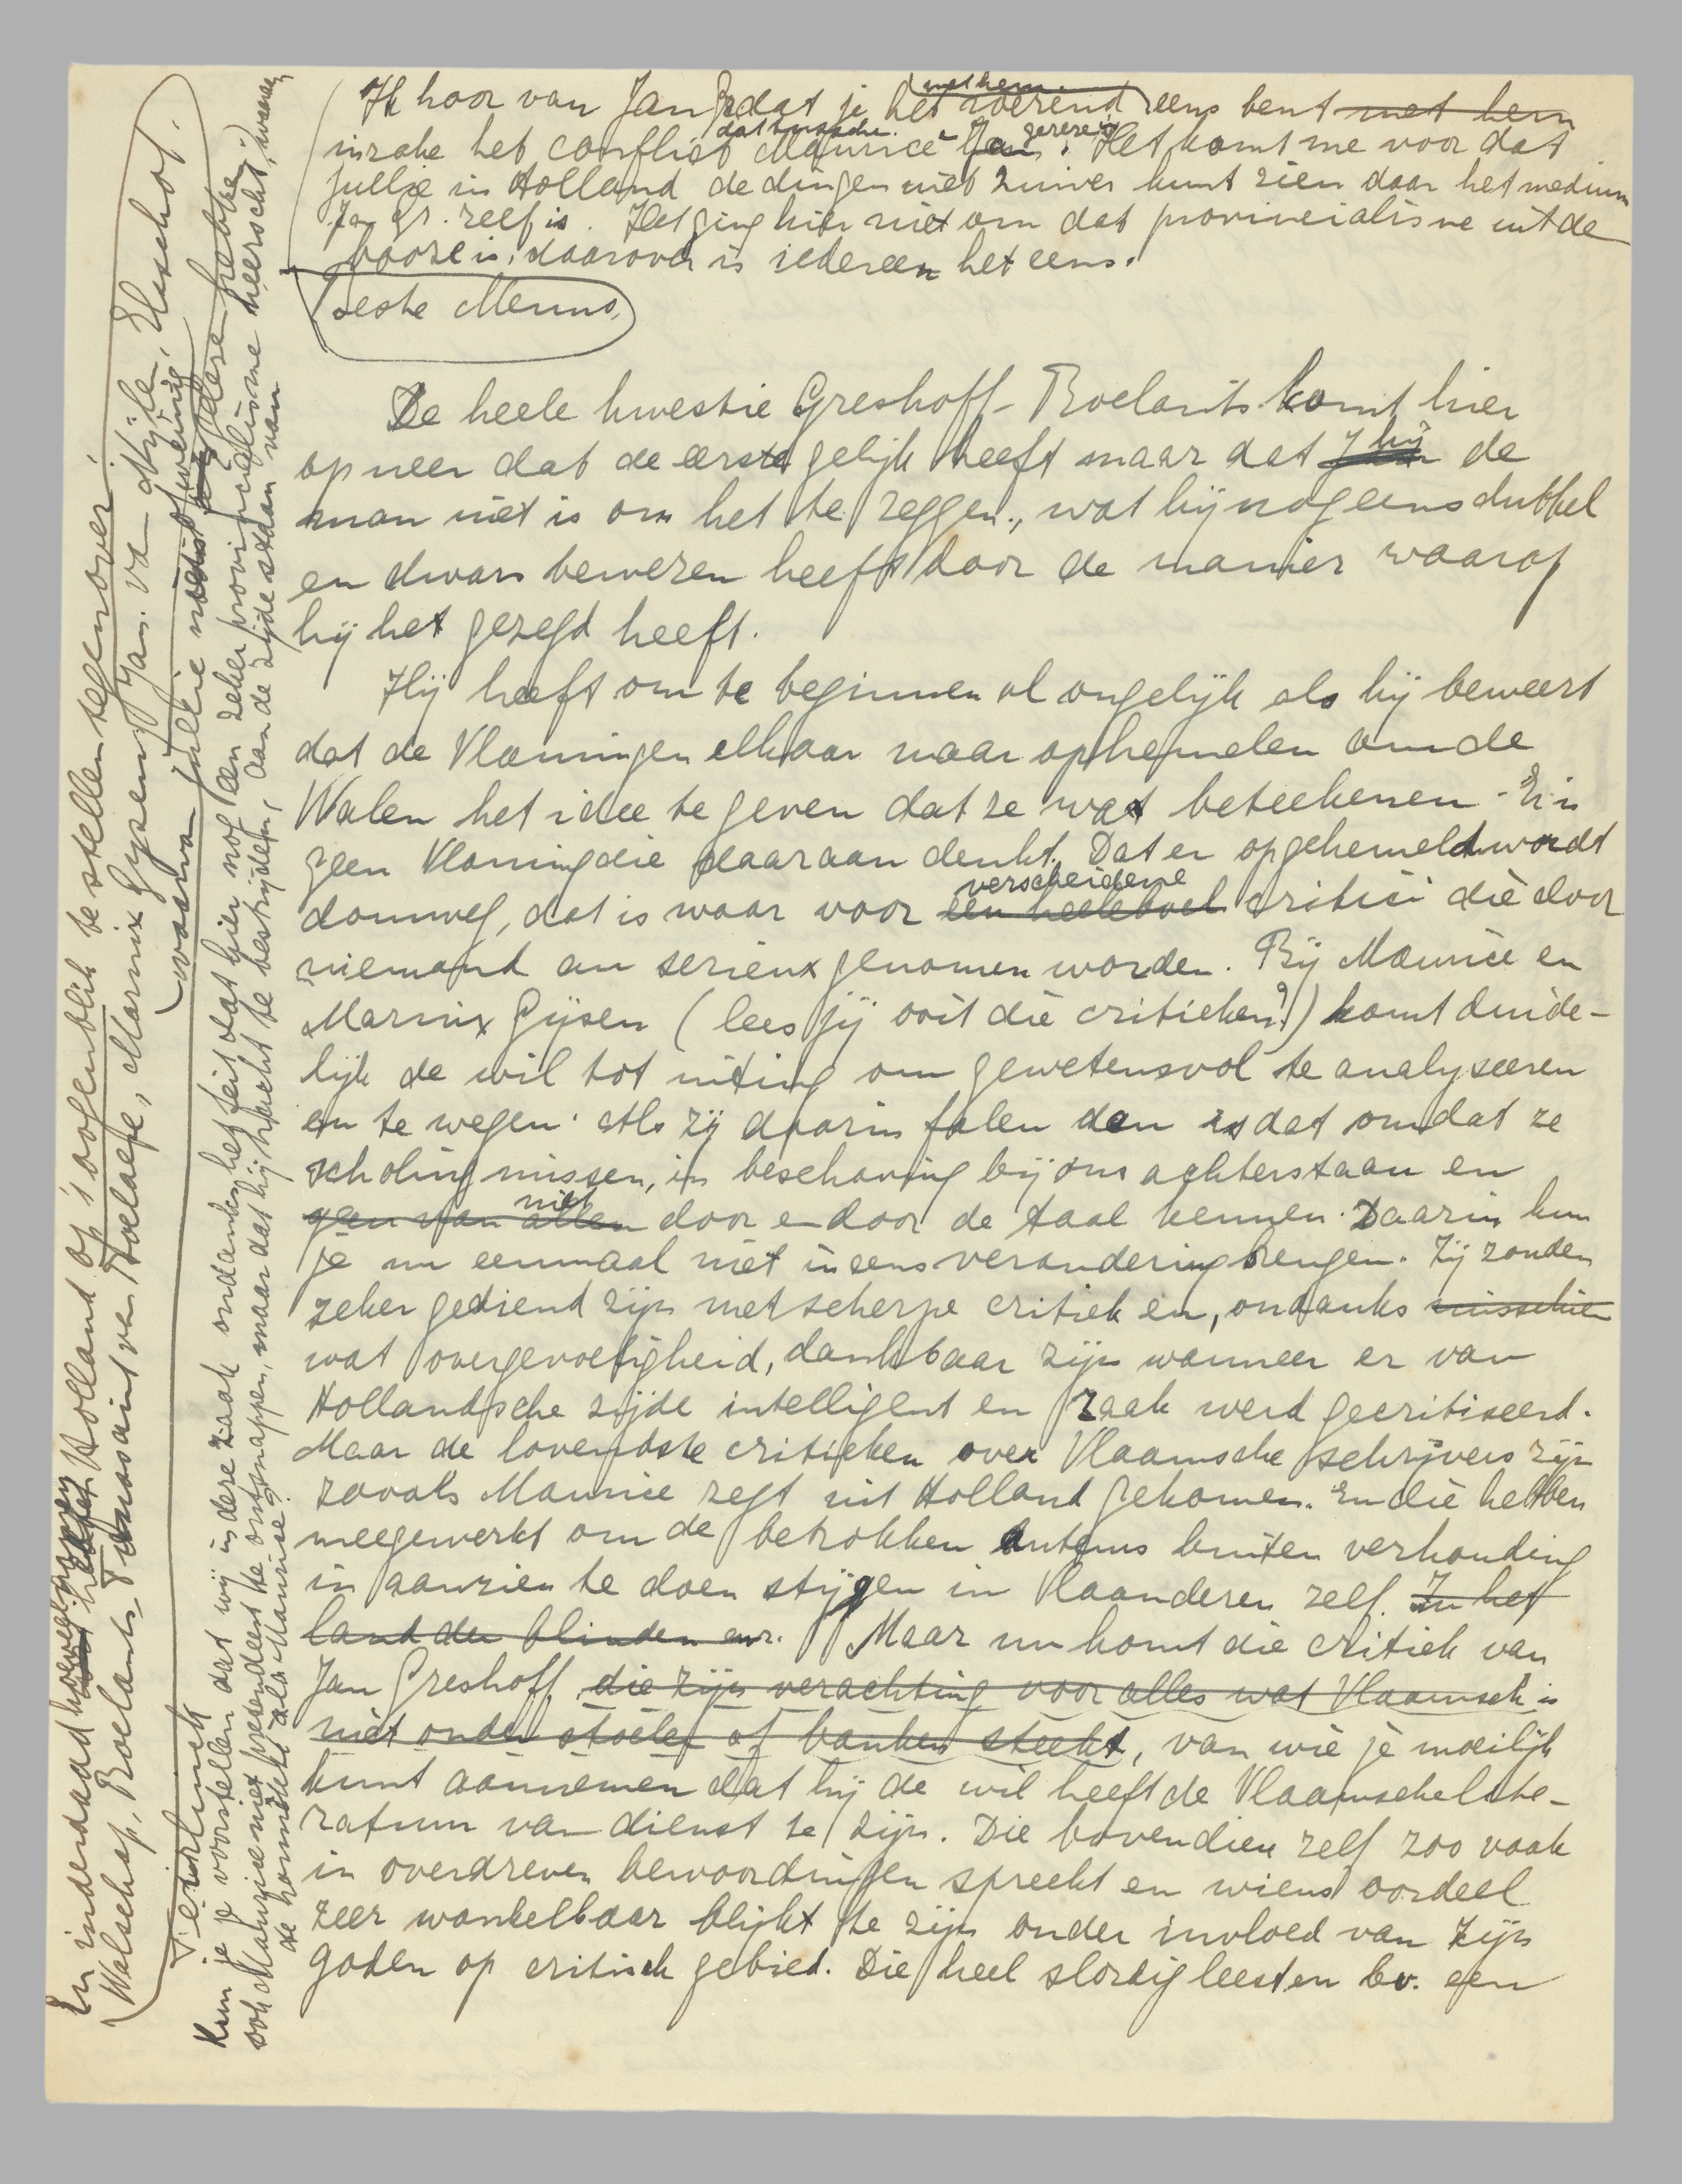 Ik hoor van Jan Gr dat je het roerend met hem eens bent met hem
inzake het conflict dat tusschen Maurice en Jan gerezen is. Het komt me voor dat
jullie in Holland de dingen niet zuiver kunt zien daar het medium
Jan Gr. zelf is. Het ging hier niet om dat provincialisme uit de
booze is, daarover is iedereen het eens.
Beste Menno,
De heele kwestie Greshoff-Roelants komt hier
op neer dat de eerste gelijk heeft maar dat hij de
man niet is om het te zeggen, wat hij nog eens dubbel
en dwars bewezen heeft door de manier waarop
hij het gezegd heeft.
Hij heeft om te beginnen al ongelijk als hij beweert
dat de Vlamingen elkaar maar ophemelen om de
Walen het idee te geven dat ze wat beteekenen. Er is
geen Vlaming die daaraan denkt. Dat er opgehemeld wordt
domweg, dat is waar voor een heeleboel verscheidene critici die door
niemand au serieux genomen worden. Bij Maurice en
Marnix Gijsen (lees jij ooit die critieken?) komt duide-
lijk de wil tot uiting om gewetensvol te analyseeren
en te wegen. Als zij daarin falen dan is dat omdat ze
scholing missen, in beschaving bij ons achterstaan en
geen van allen niet door en door de taal kennen. Daarin kun
je nu eenmaal niet ineens verandering brengen. Zij zouden
zeker gediend zijn met scherpe critiek en, ondanks misschien
wat overgevoeligheid, dankbaar zijn wanneer er van
Hollandsche zijde intelligent en raak werd gecritiseerd.
Maar de lovendste critieken over Vlaamsche schrijvers zijn
zooals Maurice zegt uit Holland gekomen. En die hebben
meegewerkt om de betrokken auteurs buiten verhouding
in aanzien te doen stijgen in Vlaanderen zelf. In het
land der blinden enz. Maar nu komt die critiek van
Jan Greshoff, die zijn verachting voor alles wat Vlaamsch is
niet onder stoelen of banken steekt, van wie je moeilijk
kunt aannemen dat hij de wil heeft de Vlaamsche lite-
ratuur van dienst te zijn. Die bovendien zelf zoo vaak
in overdreven bewoordingen spreekt en wiens oordeel
zeer wankelbaar blijkt te zijn onder invloed van zijn
goden op critisch gebied. Die heel slordig leest en bv. een
En inderdaad hoeveel Holland op 't oogenblik te stellen tegenover
Walschap, Roelants, Toussaint van Boelaere, Marnix Gijsen, Jan van Nijlen, Elsschot.
Teirlinck
(waarvan jullie nooit of weinig hebt
Kun je je voorstellen dat wij in deze zaak ondanks het feit dat hier nog een zeker provincialisme heerscht, waaraan
ook Maurice niet presendeert te ontsnappen, maar dat hij tracht te bestrijden, aan de zijde staan van
Maurice?